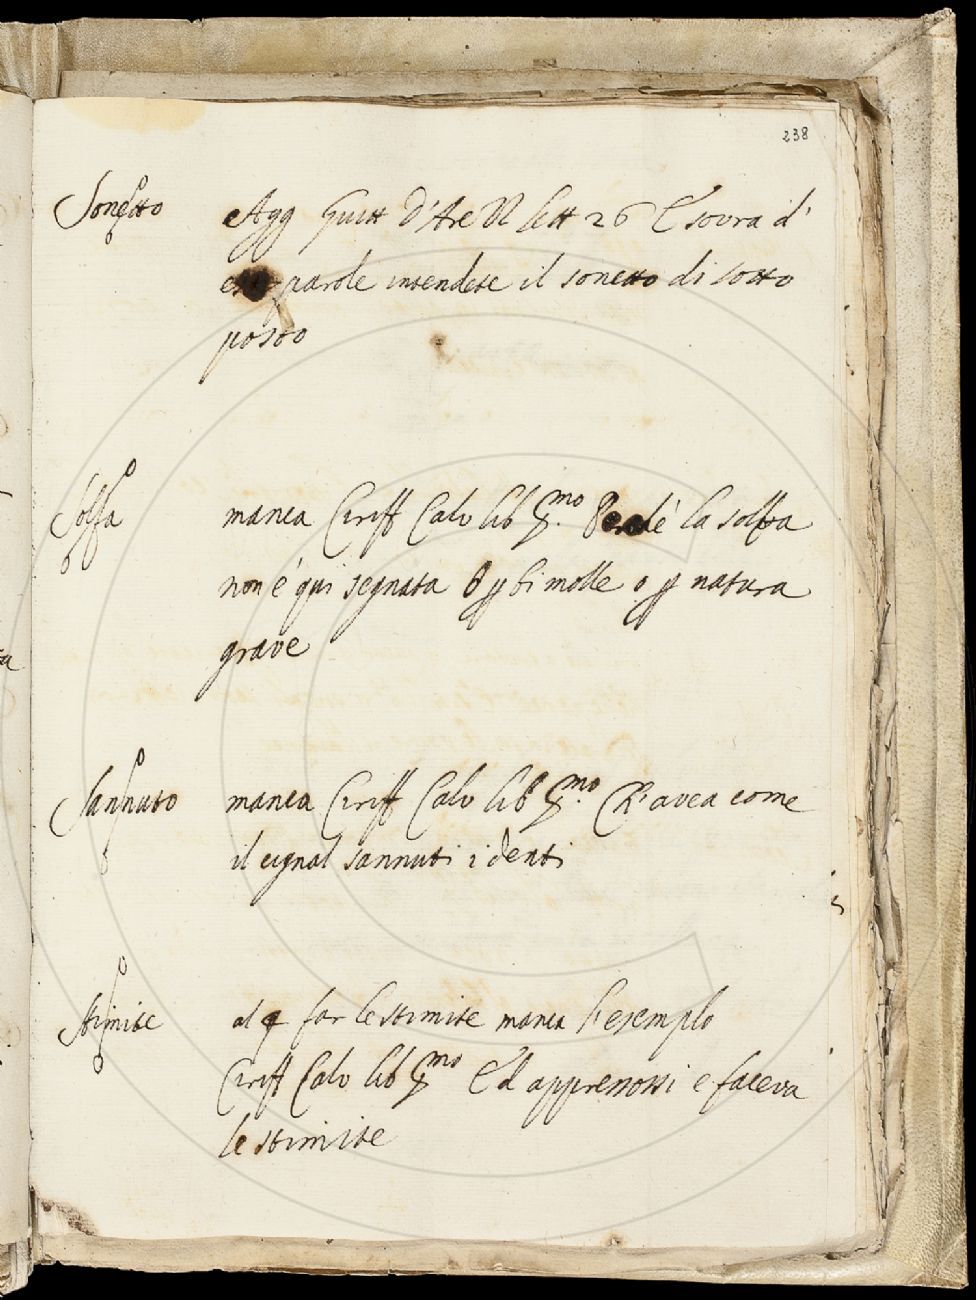 238
Sonetto Agg Guitt d'Are lett 26 E sovra d'
parole intendete il sonetto di sotto
posto
Solfa manca Ciriff Calv lib pmo la solfa
non è qui segnata o p bimolle o p natura
grave
Sannuto manca Ciriff Calv lib pmo Ch'avea come
il cignal sannuti i denti
Stimite al § far le stimite manca l'esemplo
Ciriff Calv lib pmo E'l appressossi e faceva
le stimite